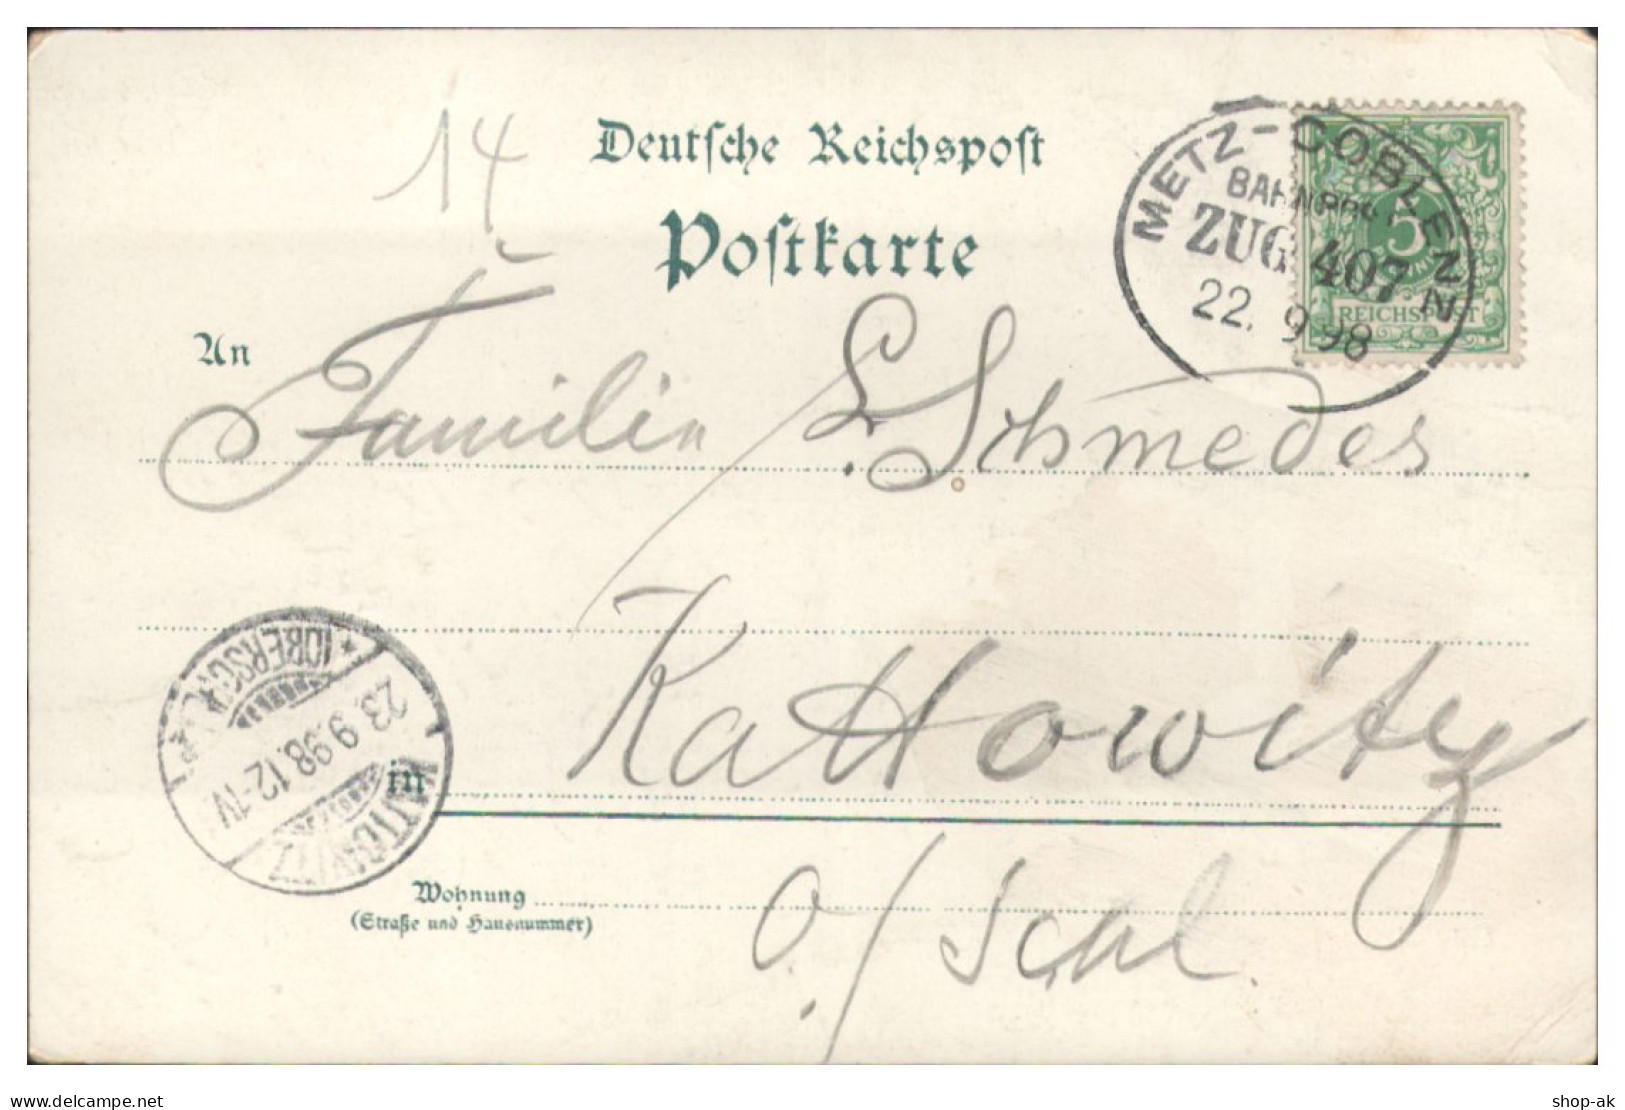 14
Deutsche Reichspost
Postkarte
METZ-COBLENZ
BAHNPOST
ZUG 407
22. 9 98
5
REICHSPOST
An
Familie L. Schmedes
KATTOWITZ
23.9.98.12-1V.
in Kattowitz
Wohnung
(Straße und Hausnummer)
O./Schl.
www.delcampe.net
shop-ak